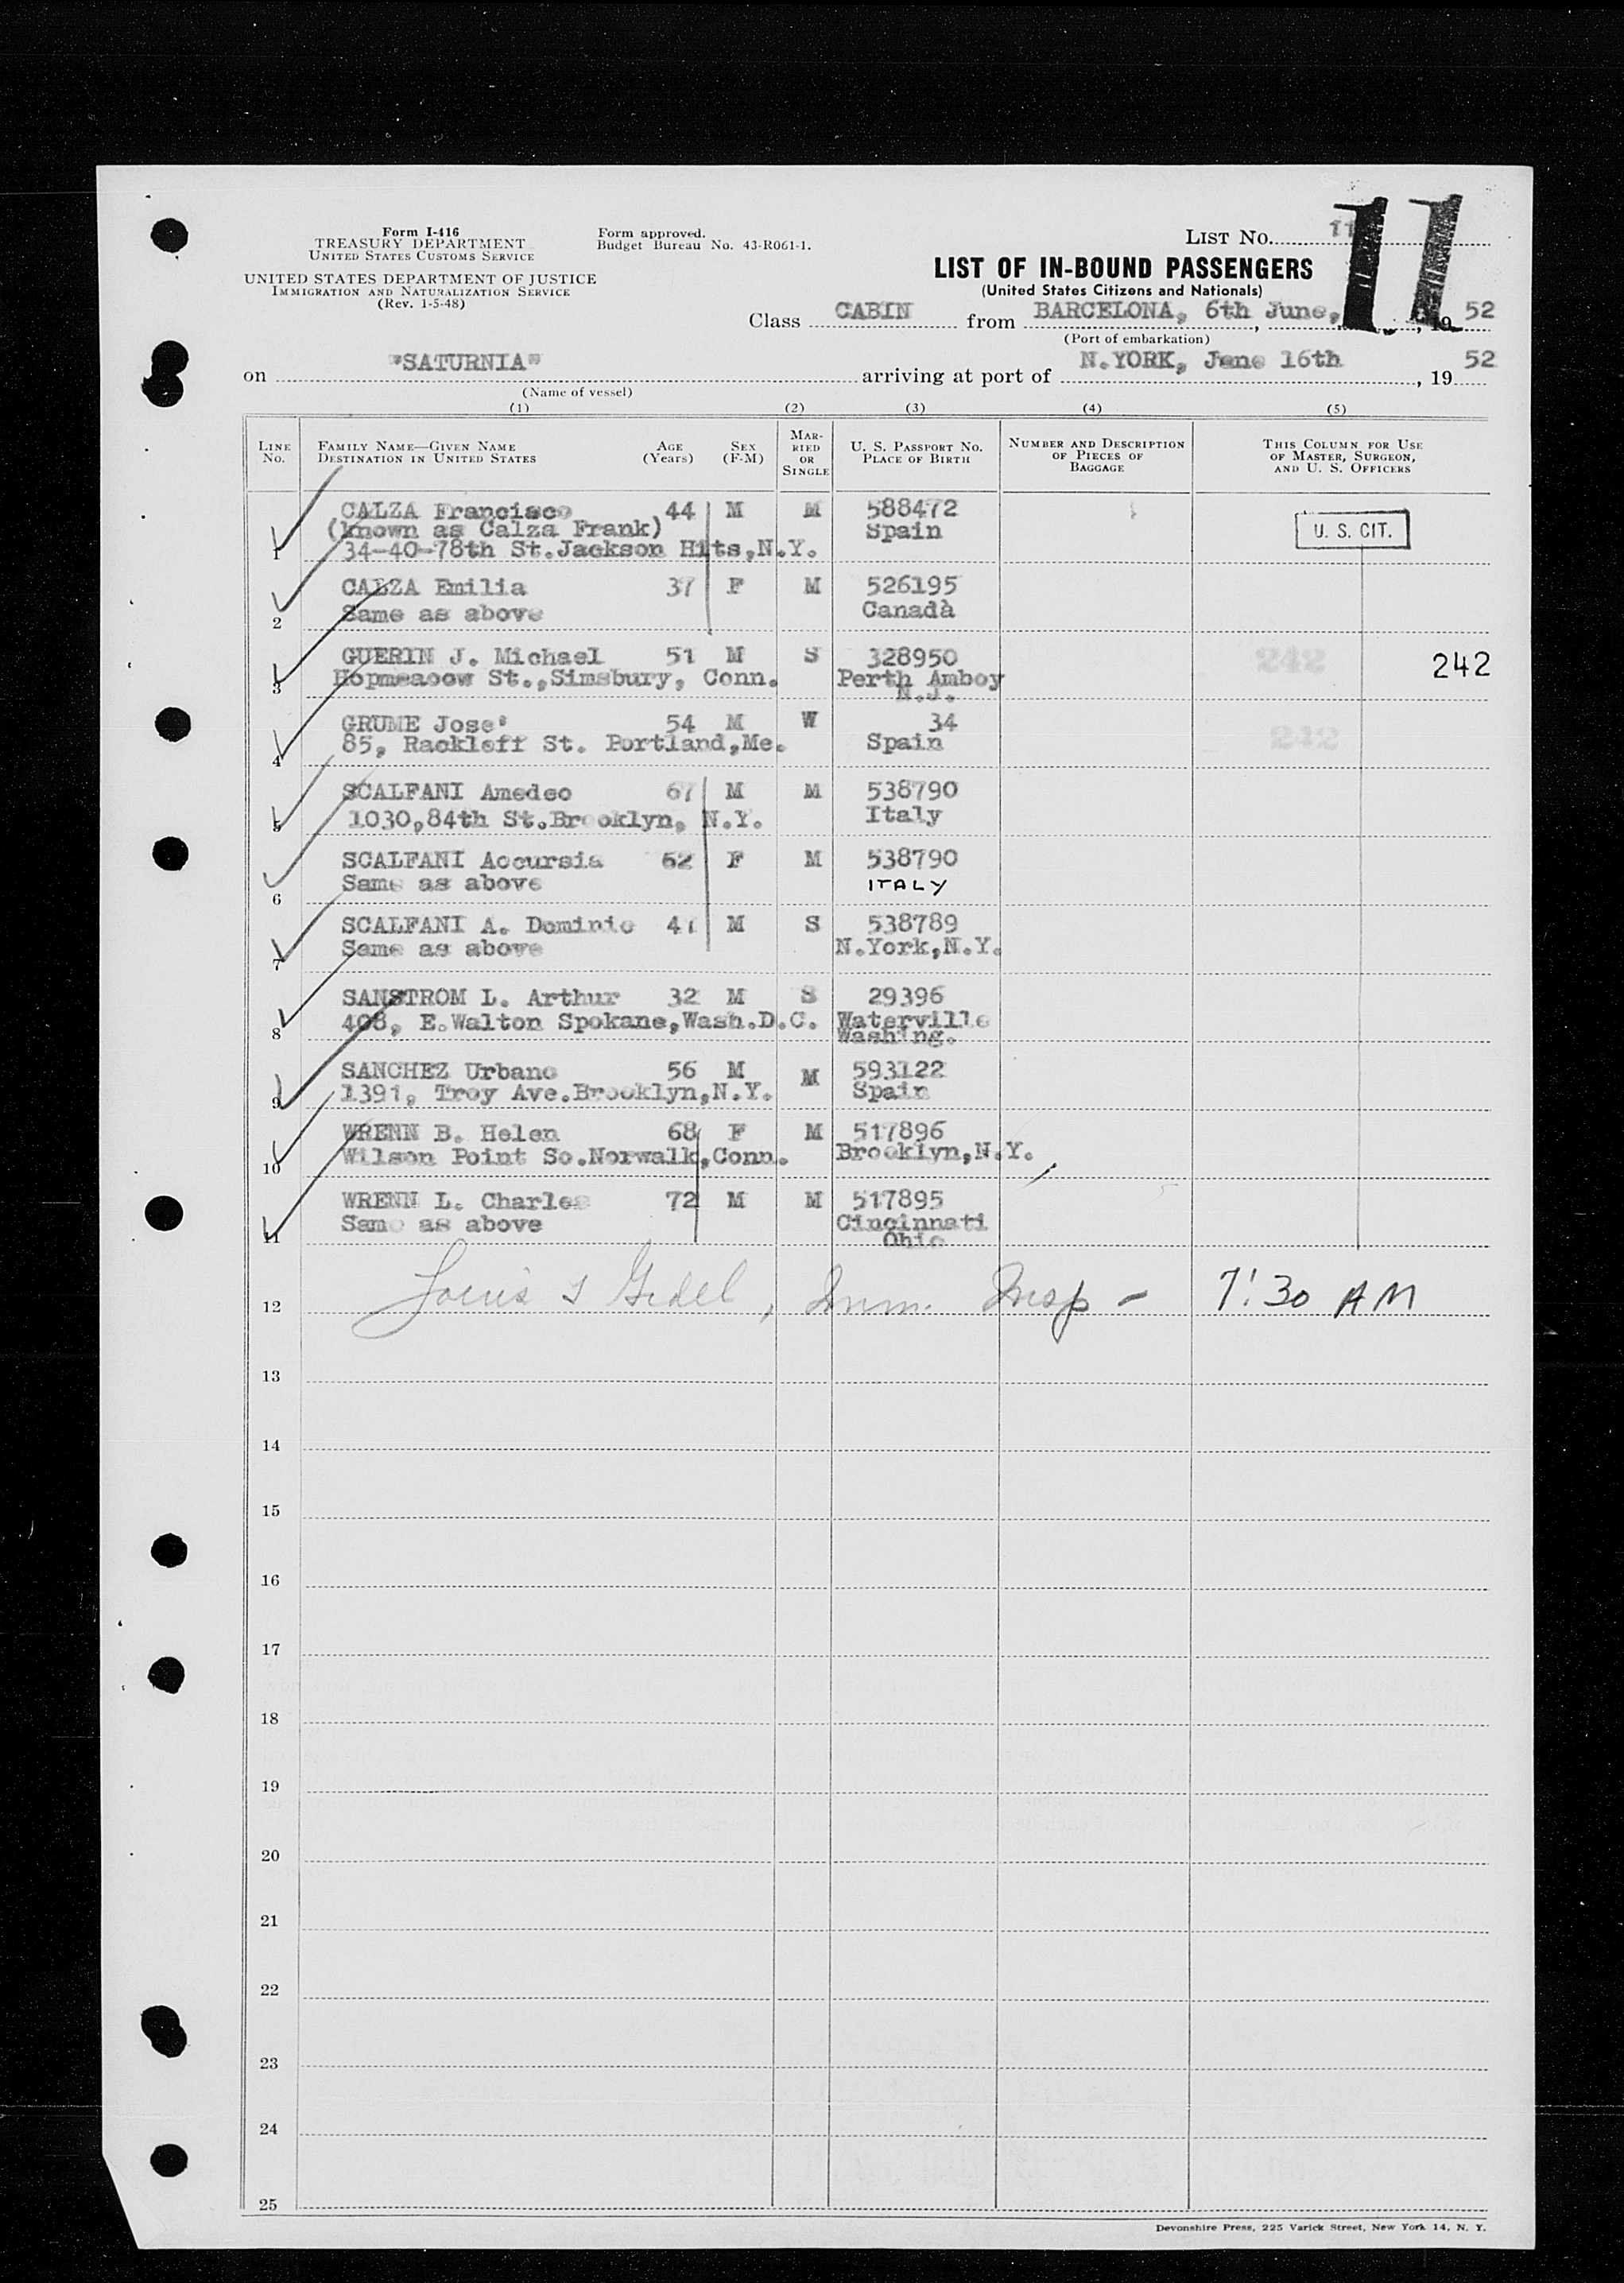 Form I-416
TREASURY DEPARTMENT
UNITED STATES CUSTOMS SERVICE
UNITED STATES DEPARTMENT OF JUSTICE
IMMIGRATION AND NATURALIZATION SERVICE
(Rev. 1-5-48)
Form approved.
Budget Bureau No. 43-R061-1.
LIST No. 11
11
LIST OF IN-BOUND PASSENGERS
(United States Citizens and Nationals)
Class CABIN from BARCELONA, 6th June, , 19 52
(Port of embarkation)
on "SATURNIA" arriving at port of N.YORK, June 16th , 19 52
(Name of vessel)
(1) (2) (3) (4) (5)
LINE No. FAMILY NAME—GIVEN NAME DESTINATION IN UNITED STATES AGE (Years) SEX (F-M) MARRIED OR SINGLE U. S. PASSPORT No. PLACE OF BIRTH NUMBER AND DESCRIPTION OF PIECES OF BAGGAGE THIS COLUMN FOR USE OF MASTER, SURGEON, AND U. S. OFFICERS
CALZA Francisco 44 M M 588472
(known as Calza Frank) Spain U. S. CIT.
1 34-40-78th St.Jackson Hits,N.Y.
CALZA Emilia 37 F M 526195
2 Same as above Canadà
GUERIN J. Michael 51 M S 328950 242 242
3 Hopmeadow St.,Simsbury, Conn. Perth Amboy
N.J.
GRUME Jose' 54 M W 34
4 85, Rackleff St. Portland,Me. Spain 242
SCALFANI Amedeo 67 M M 538790
5 1030,84th St.Brooklyn, N.Y. Italy
SCALFANI Accursia 62 F M 538790
6 Same as above ITALY
SCALFANI A. Dominic 41 M S 538789
7 Same as above N.York,N.Y.
SANSTROM L. Arthur 32 M S 29396
8 408, E.Walton Spokane,Wash.D.C. Waterville
Washing.
SANCHEZ Urbano 56 M M 593122
9 1391, Troy Ave.Brooklyn,N.Y. Spain
WRENN B. Helen 68 F M 517896
10 Wilson Point So.Norwalk,Conn. Brooklyn,N.Y.
WRENN L. Charles 72 M M 517895
11 Same as above Cincinnati
Ohio
12 Louis Imm. Insp - 7:30 AM
13
14
15
16
17
18
19
20
21
22
23
24
25
Devonshire Press, 225 Varick Street, New York 14, N. Y.